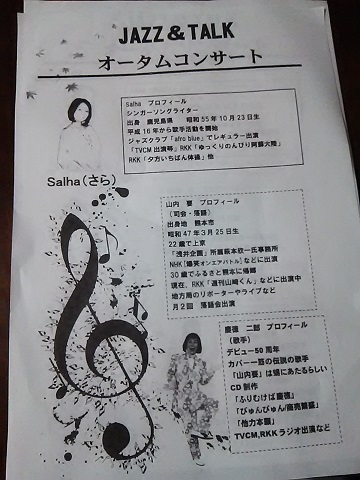 JAZZ＆TALK
オータムコンサート
Salha プロフィール
シンガーソングライター
出身 鹿児島県 昭和55年10月23日生
平成16年から歌手活動を開始
ジャズクラブ「afro blue」でレギュラー出演
「TVCM 出演等」RKK「ゆっくりのんびり阿蘇大陸」
RKK「夕方いちばん体操」他
Salha（さら）
山内 要 プロフィール
（司会・落語）
出身地 熊本市
昭和47年3月25日生
22歳で上京
「浅井企画」所属萩本欽一氏事務所
NHK「爆笑オンエアバトル」などに出演
30歳でふるさと熊本に帰郷
現在、RKK「週刊山崎くん」などに出演中
地方局のリポーターやライブなど
月2回 落語会出演
慶徳 二郎 プロフィール
（歌手）
デビュー50周年
カバー一筋の伝説の歌手
「山内要」は甥にあたるらしい
CD制作
「ふりむけば慶徳」
「びゅんびゅん/商売繁盛」
「他力本願」
TVCM,RKKラジオ出演など